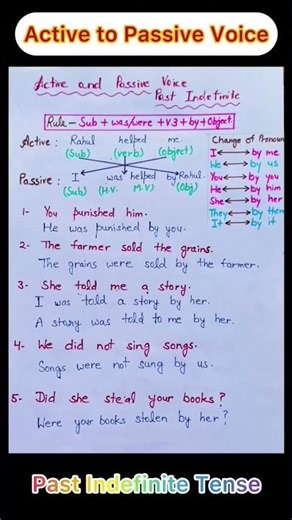 Active to Passive Voice
Active and Passive Voice
Past Indefinite
Rule - Sub + was/were + V3 + by + Object
Active : Rahul helped me
(Sub) (verb) (object)
Passive : I was helped by Rahul.
(Sub) (H.V. M.V) (Obj)
Change of Pronoun
I ↔ by me
We ↔ by us
You ↔ by you
He ↔ by him
She ↔ by her
They ↔ by them
It ↔ by it
1- You punished him.
He was punished by you.
2- The farmer sold the grains.
The grains were sold by the farmer.
3- She told me a story.
I was told a story by her.
A story was told to me by her.
4- We did not sing songs.
Songs were not sung by us.
5- Did she steal your books?
Were your books stolen by her?
Past Indefinite Tense